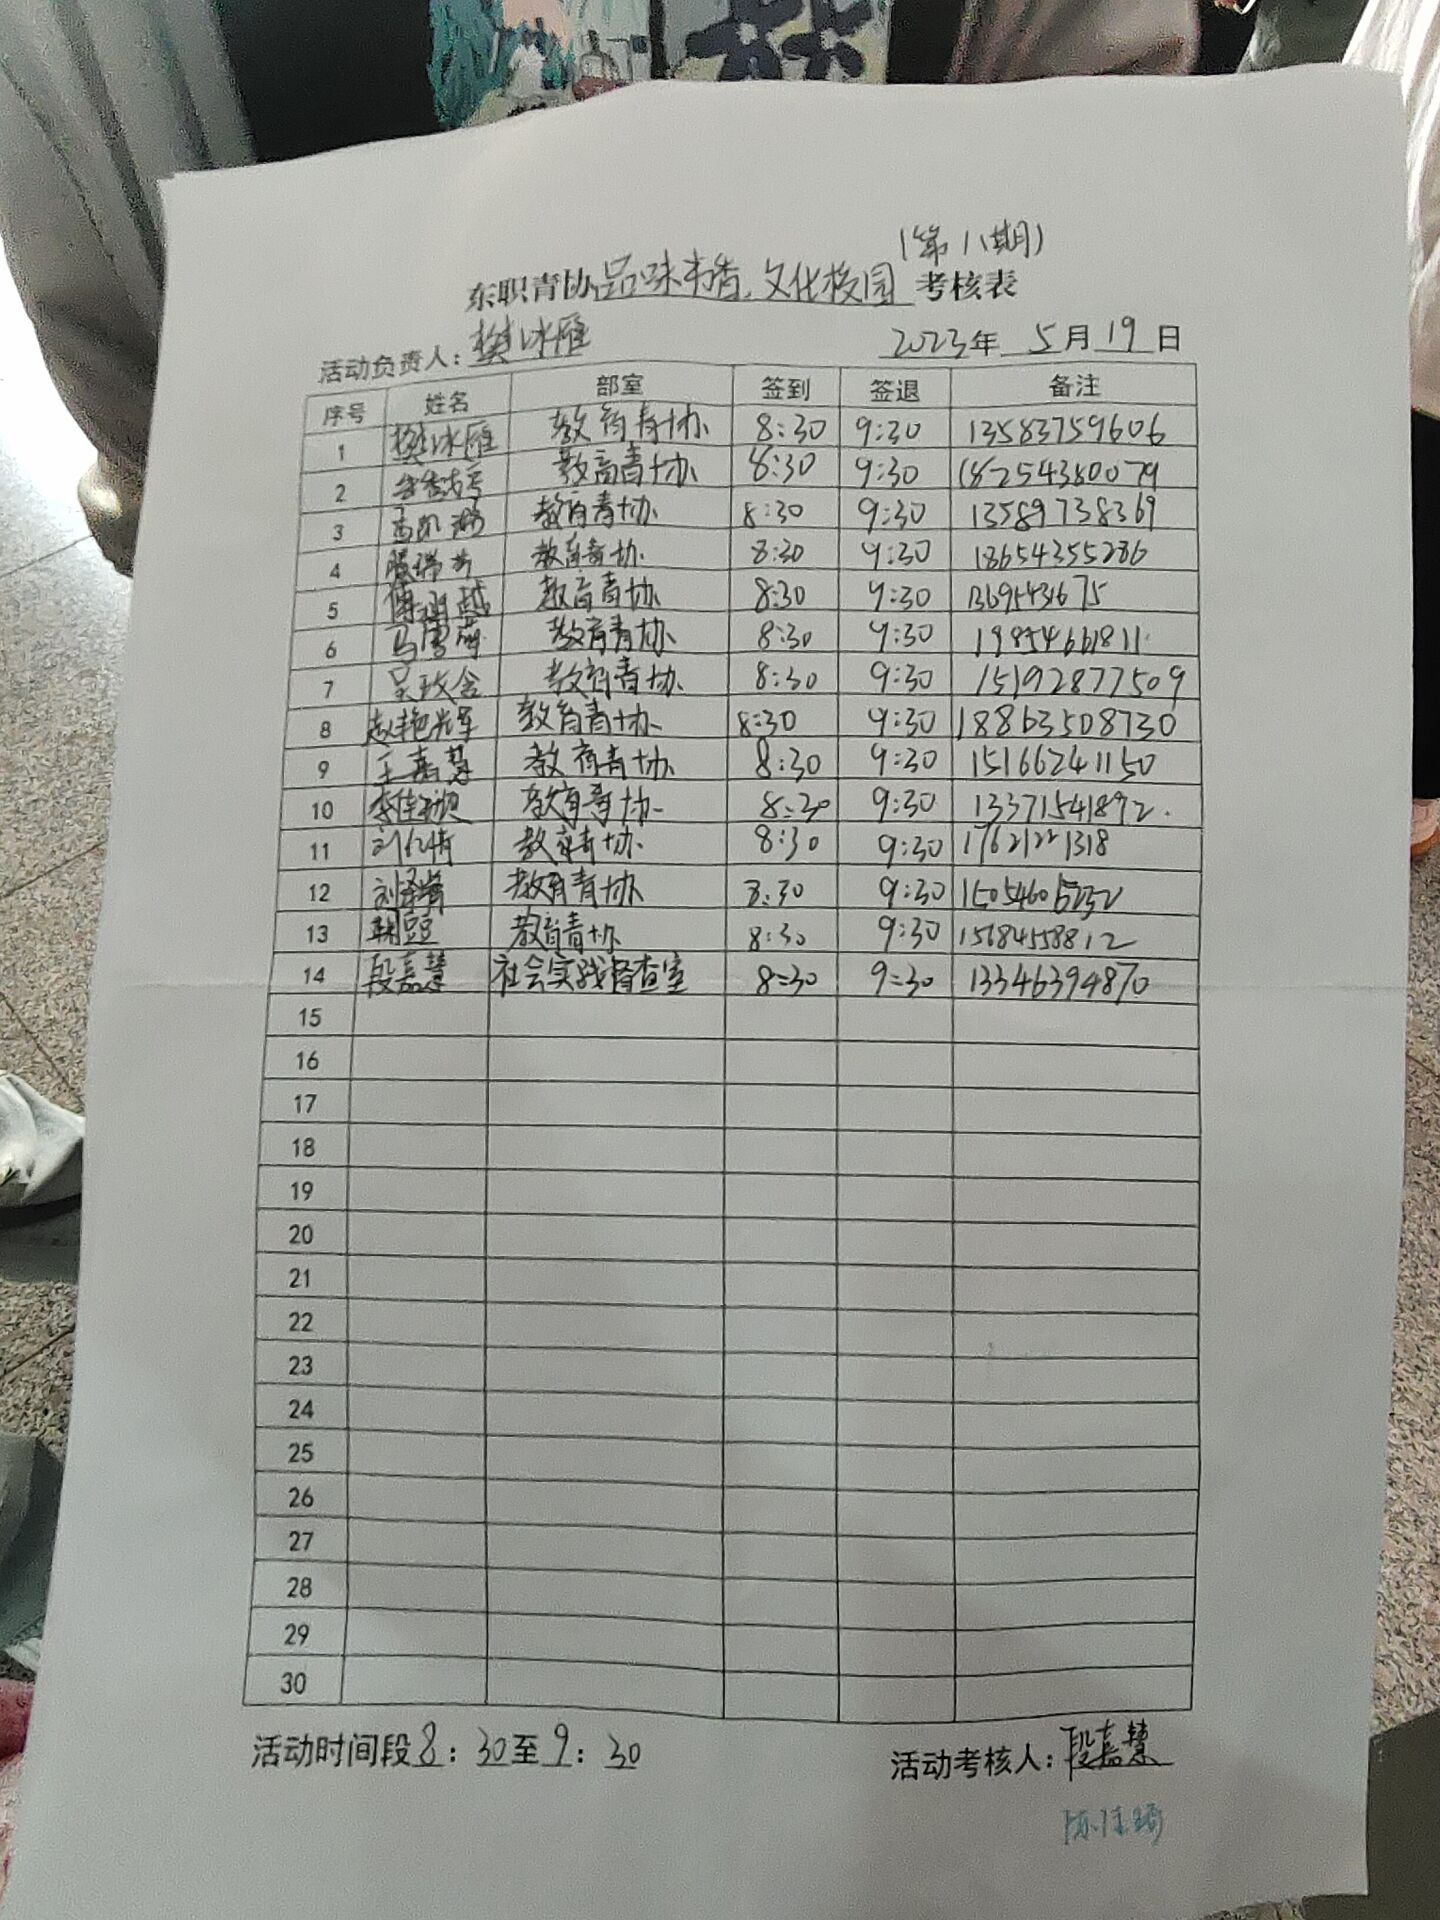 （第八期）
东职青协品味书香,文化校园考核表
活动负责人：樊冰雁 2023年 5月 19日
序号 姓名 部室 签到 签退 备注
1 樊冰雁 教育青协 8:30 9:30 13583759606
2 教育青协 8:30 9:30 18254380079
3 教育青协 8:30 9:30 13589738369
4 教育青协 8:30 9:30 18654355286
5 教育青协 8:30 9:30
6 马雪 教育青协 8:30 9:30 19854661811
7 教育青协 8:30 9:30 15192877509
8 赵艳辉 教育青协 8:30 9:30 18863508730
9 王嘉慧 教育青协 8:30 9:30 15166241150
10 李佳颖 教育青协 8:30 9:30 13371541892.
11 教育青协 8:30 9:30 17621221318
12 教育青协 8:30 9:30
13 教育青协 8:30 9:30 15684558812
14 段嘉慧 社会实践督查室 8:30 9:30 13346394870
15
16
17
18
19
20
21
22
23
24
25
26
27
28
29
30
活动时间段8：30至9：30 活动考核人：段嘉慧